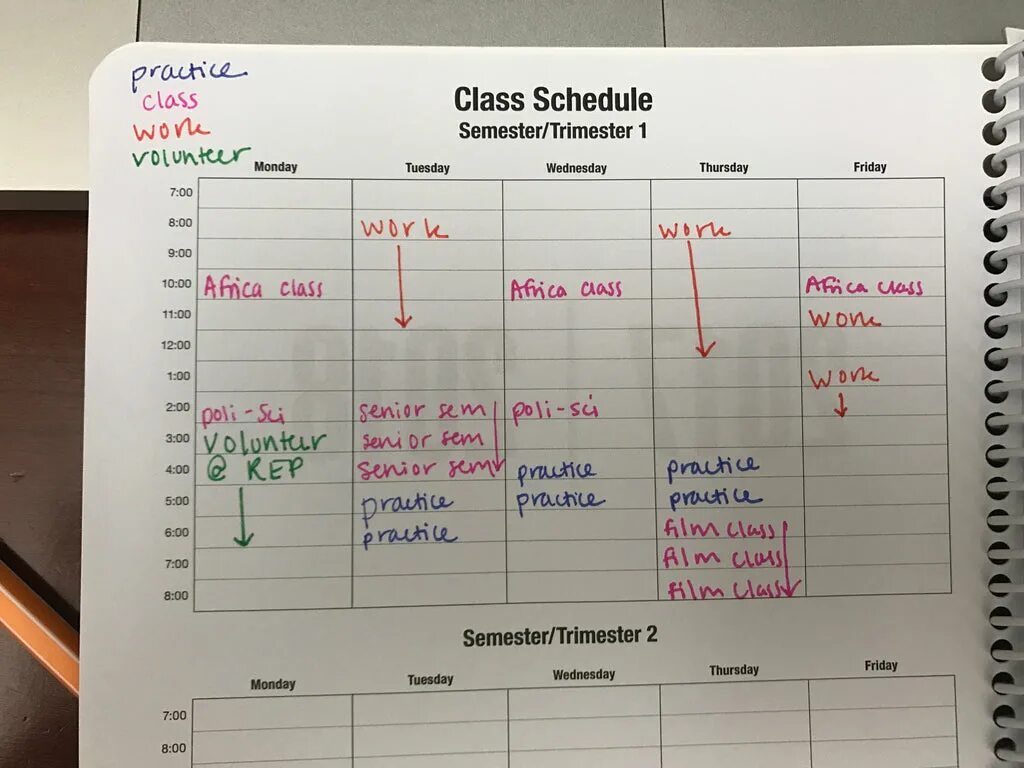 practice
class
work
volunteer
Class Schedule
Semester/Trimester 1
Monday Tuesday Wednesday Thursday Friday
7:00
8:00 work work
9:00
10:00 Africa class Africa class Africa class
11:00 work
12:00
1:00 work
2:00 poli-sci senior sem poli-sci
3:00 volunteer senior sem
4:00 @ REP senior sem practice practice
5:00 practice practice practice
6:00 practice film class
7:00 film class
8:00 film class
Semester/Trimester 2
Monday Tuesday Wednesday Thursday Friday
7:00
8:00